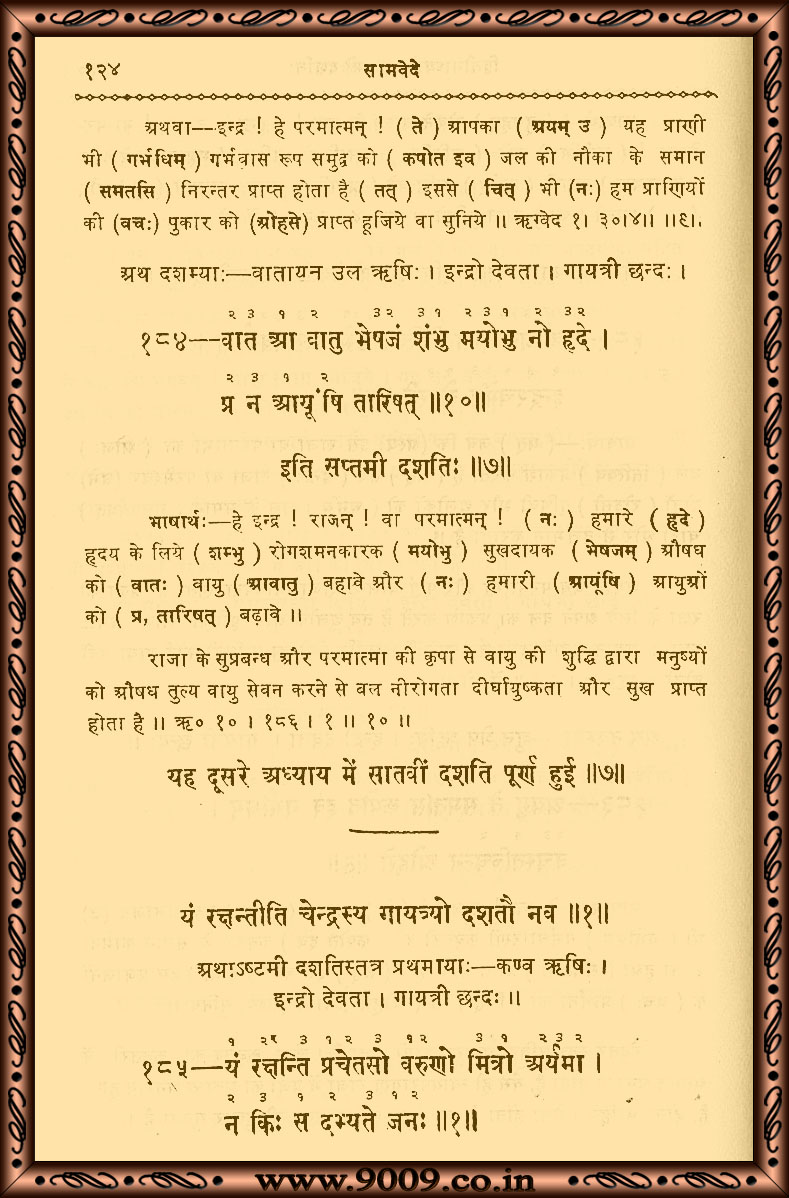 १२४ सामवेदे
अथवा--इन्द्र ! हे परमात्मन् ! ( ते ) आपका ( अयम् उ ) यह प्राणी
भी ( गर्भधिम् ) गर्भवास रूप समुद्र को ( कपोत इव ) जल की नौका के समान
( समतसि ) निरन्तर प्राप्त होता है ( तत् ) इससे ( चित् ) भी (नः) हम प्राणियों
की (वचः) पुकार को (ओहसे) प्राप्त हूजिये वा सुनिये ॥ ऋग्वेद १। ३०।४॥ ॥९।.
अथ दशम्याः—वातायन उल ऋषिः । इन्द्रो देवता । गायत्री छन्दः ।
२ ३ १ २ ३२ ३१ २३१ २ ३२
१८४--वात आ वातु भेषजं शंभु मयोभु नो हृदे ।
२ ३ १ २
प्र न आयूंषि तारिषत् ॥१०॥
इति सप्तमी दशतिः ॥७॥
भाषार्थः—हे इन्द्र ! राजन् ! वा परमात्मन् ! ( नः ) हमारे ( हृदे )
हृदय के लिये ( शम्भु ) रोगशमनकारक ( मयोभु ) सुखदायक ( भेषजम् ) औषध
को ( वातः ) वायु ( आवातु ) बहावे और ( नः ) हमारी ( आयूंषि ) आयुओं
को ( प्र, तारिषत् ) बढ़ावे ॥
राजा के सुप्रबन्ध और परमात्मा की कृपा से वायु की शुद्धि द्वारा मनुष्यों
को औषध तुल्य वायु सेवन करने से बल नीरोगता दीर्घायुष्कता और सुख प्राप्त
होता है ॥ ऋ० १० । १८६ । १ ॥ १० ॥
यह दूसरे अध्याय में सातवीं दशति पूर्ण हुई ॥७॥
यं रक्षन्तीति चेन्द्रस्य गायत्र्यो दशतौ नव ॥१॥
अथाऽष्टमी दशतिस्तत्र प्रथमायाः—कण्व ऋषिः ।
इन्द्रो देवता । गायत्री छन्दः ॥
१ २र ३ १ २ ३ १२ ३ १ २३२
१८५—यं रक्षन्ति प्रचेतसो वरुणो मित्रो अर्यमा ।
२ ३ १ २ ३ १२
न किः स दभ्यते जनः ॥१॥
www.9009.co.in